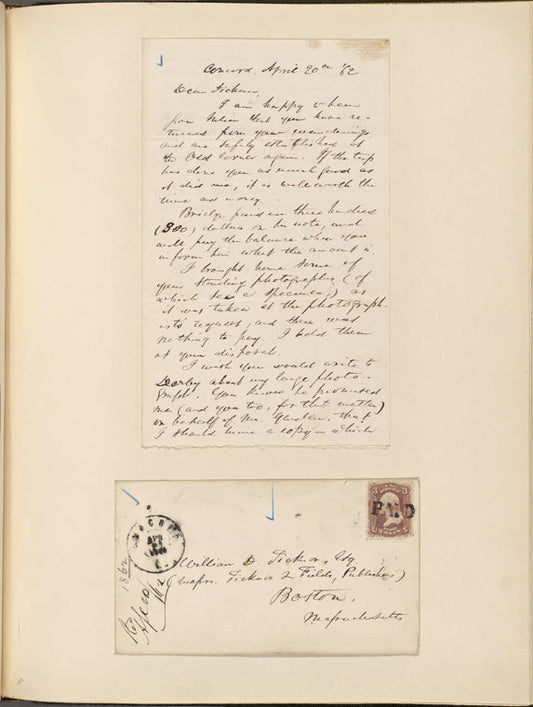 Concord, April 20th '62
Dear Ticknor,
I am happy to hear
from Julian that you have re-
turned from your wanderings
and are safely established at
the Old Corner again. If the trip
has done you as much good as
it did me, it is well worth the
time and money.
Bridge paid me three hundred
(300) dollars on his note, and
will pay the balance when you
inform him what the amount is
I brought home some of
your standing photographs (of
which see a specimen,) as
it was taken at the photograph-
ist's request, and there was
nothing to pay. I hold them
at your disposal.
I wish you would write to
about my large photo-
graph. You know he promised
me (and you too, for that matter)
on behalf of Mr. that
I should have a copy — which
3 3
PAID
CENTS
CONCORD
APR
William D. Ticknor, Esq
(Messrs. Ticknor & Fields, Publishers)
Boston,
Massachusetts
1862